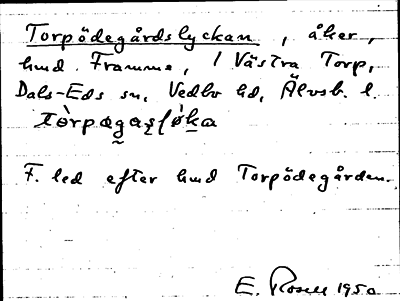 Torpödegårdslyckan, åker,
hmd. Framme, 1 Västra Torp,
Dals-Eds sn, Vedbo hd, Älvsb. l.
F. led efter hmd Torpödegården.
E. Rosell 1950